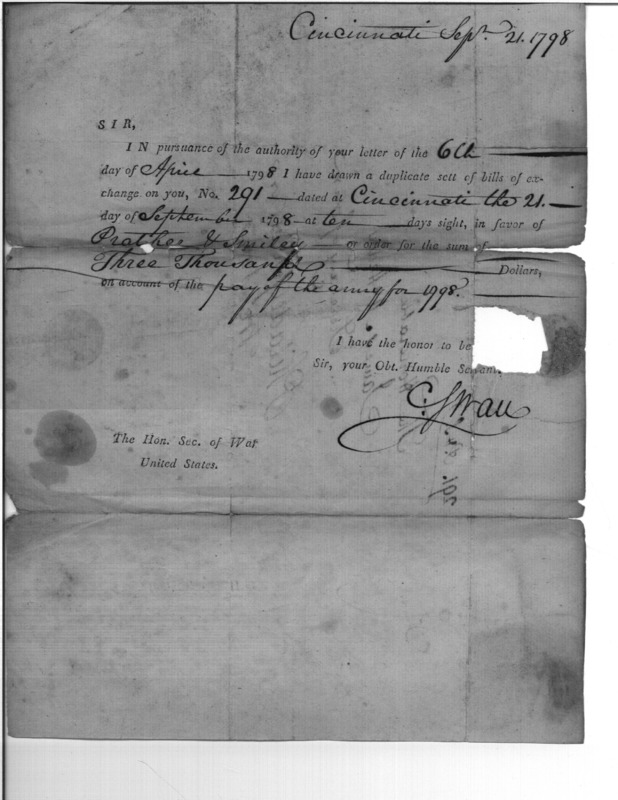 Cincinnati Sept. 21. 1798
SIR,
IN pursuance of the authority of your letter of the 6th
day of April 1798 I have drawn a duplicate sett of bills of ex-
change on you, No. 291 dated at Cincinnati the 21.
day of September 1798 at ten days sight, in favor of
Prather & Smiley or order for the sum of
Three Thousand Dollars,
on account of the pay of the army for 1798.
I have the honor to be
Sir, your Obt. Humble Servant.
C. Swan
The Hon. Sec. of War
United States.